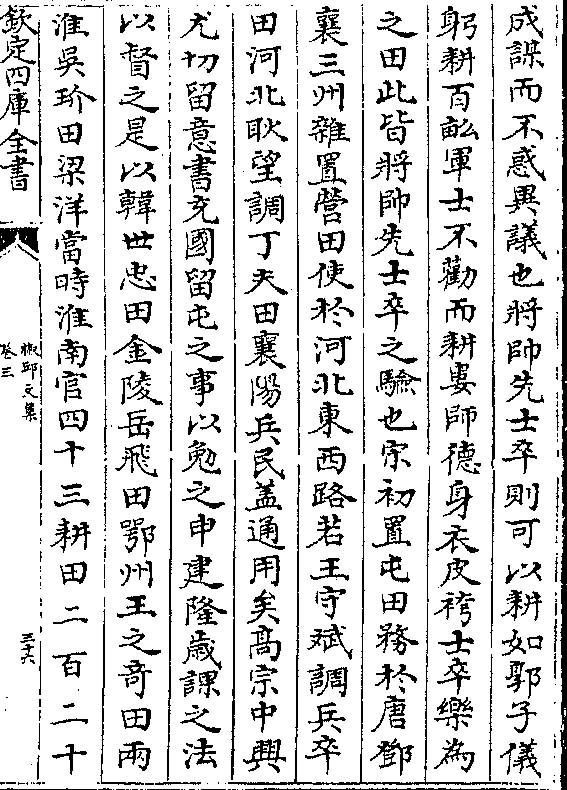 成謀而不惑異議也將帥先士卒則可以耕如郭子儀
躬耕百畝軍士不勸而耕婁師德身衣皮袴士卒樂為
之田此皆將帥先士卒之驗也宋初置屯田務於唐鄧
襄三州雜置營田使於河北東西路若王守斌調兵卒
田河北耿望調丁夫田襄陽兵民盖通用矣髙宗中興
尤切留意書充國留屯之事以勉之申建隆歲課之法
以督之是以韓世忠田金陵岳飛田鄂州王之竒田兩
淮吳玠田梁洋當時淮南官四十三耕田二百二十
欽定四庫全書
椒邱文集
卷三
三十六